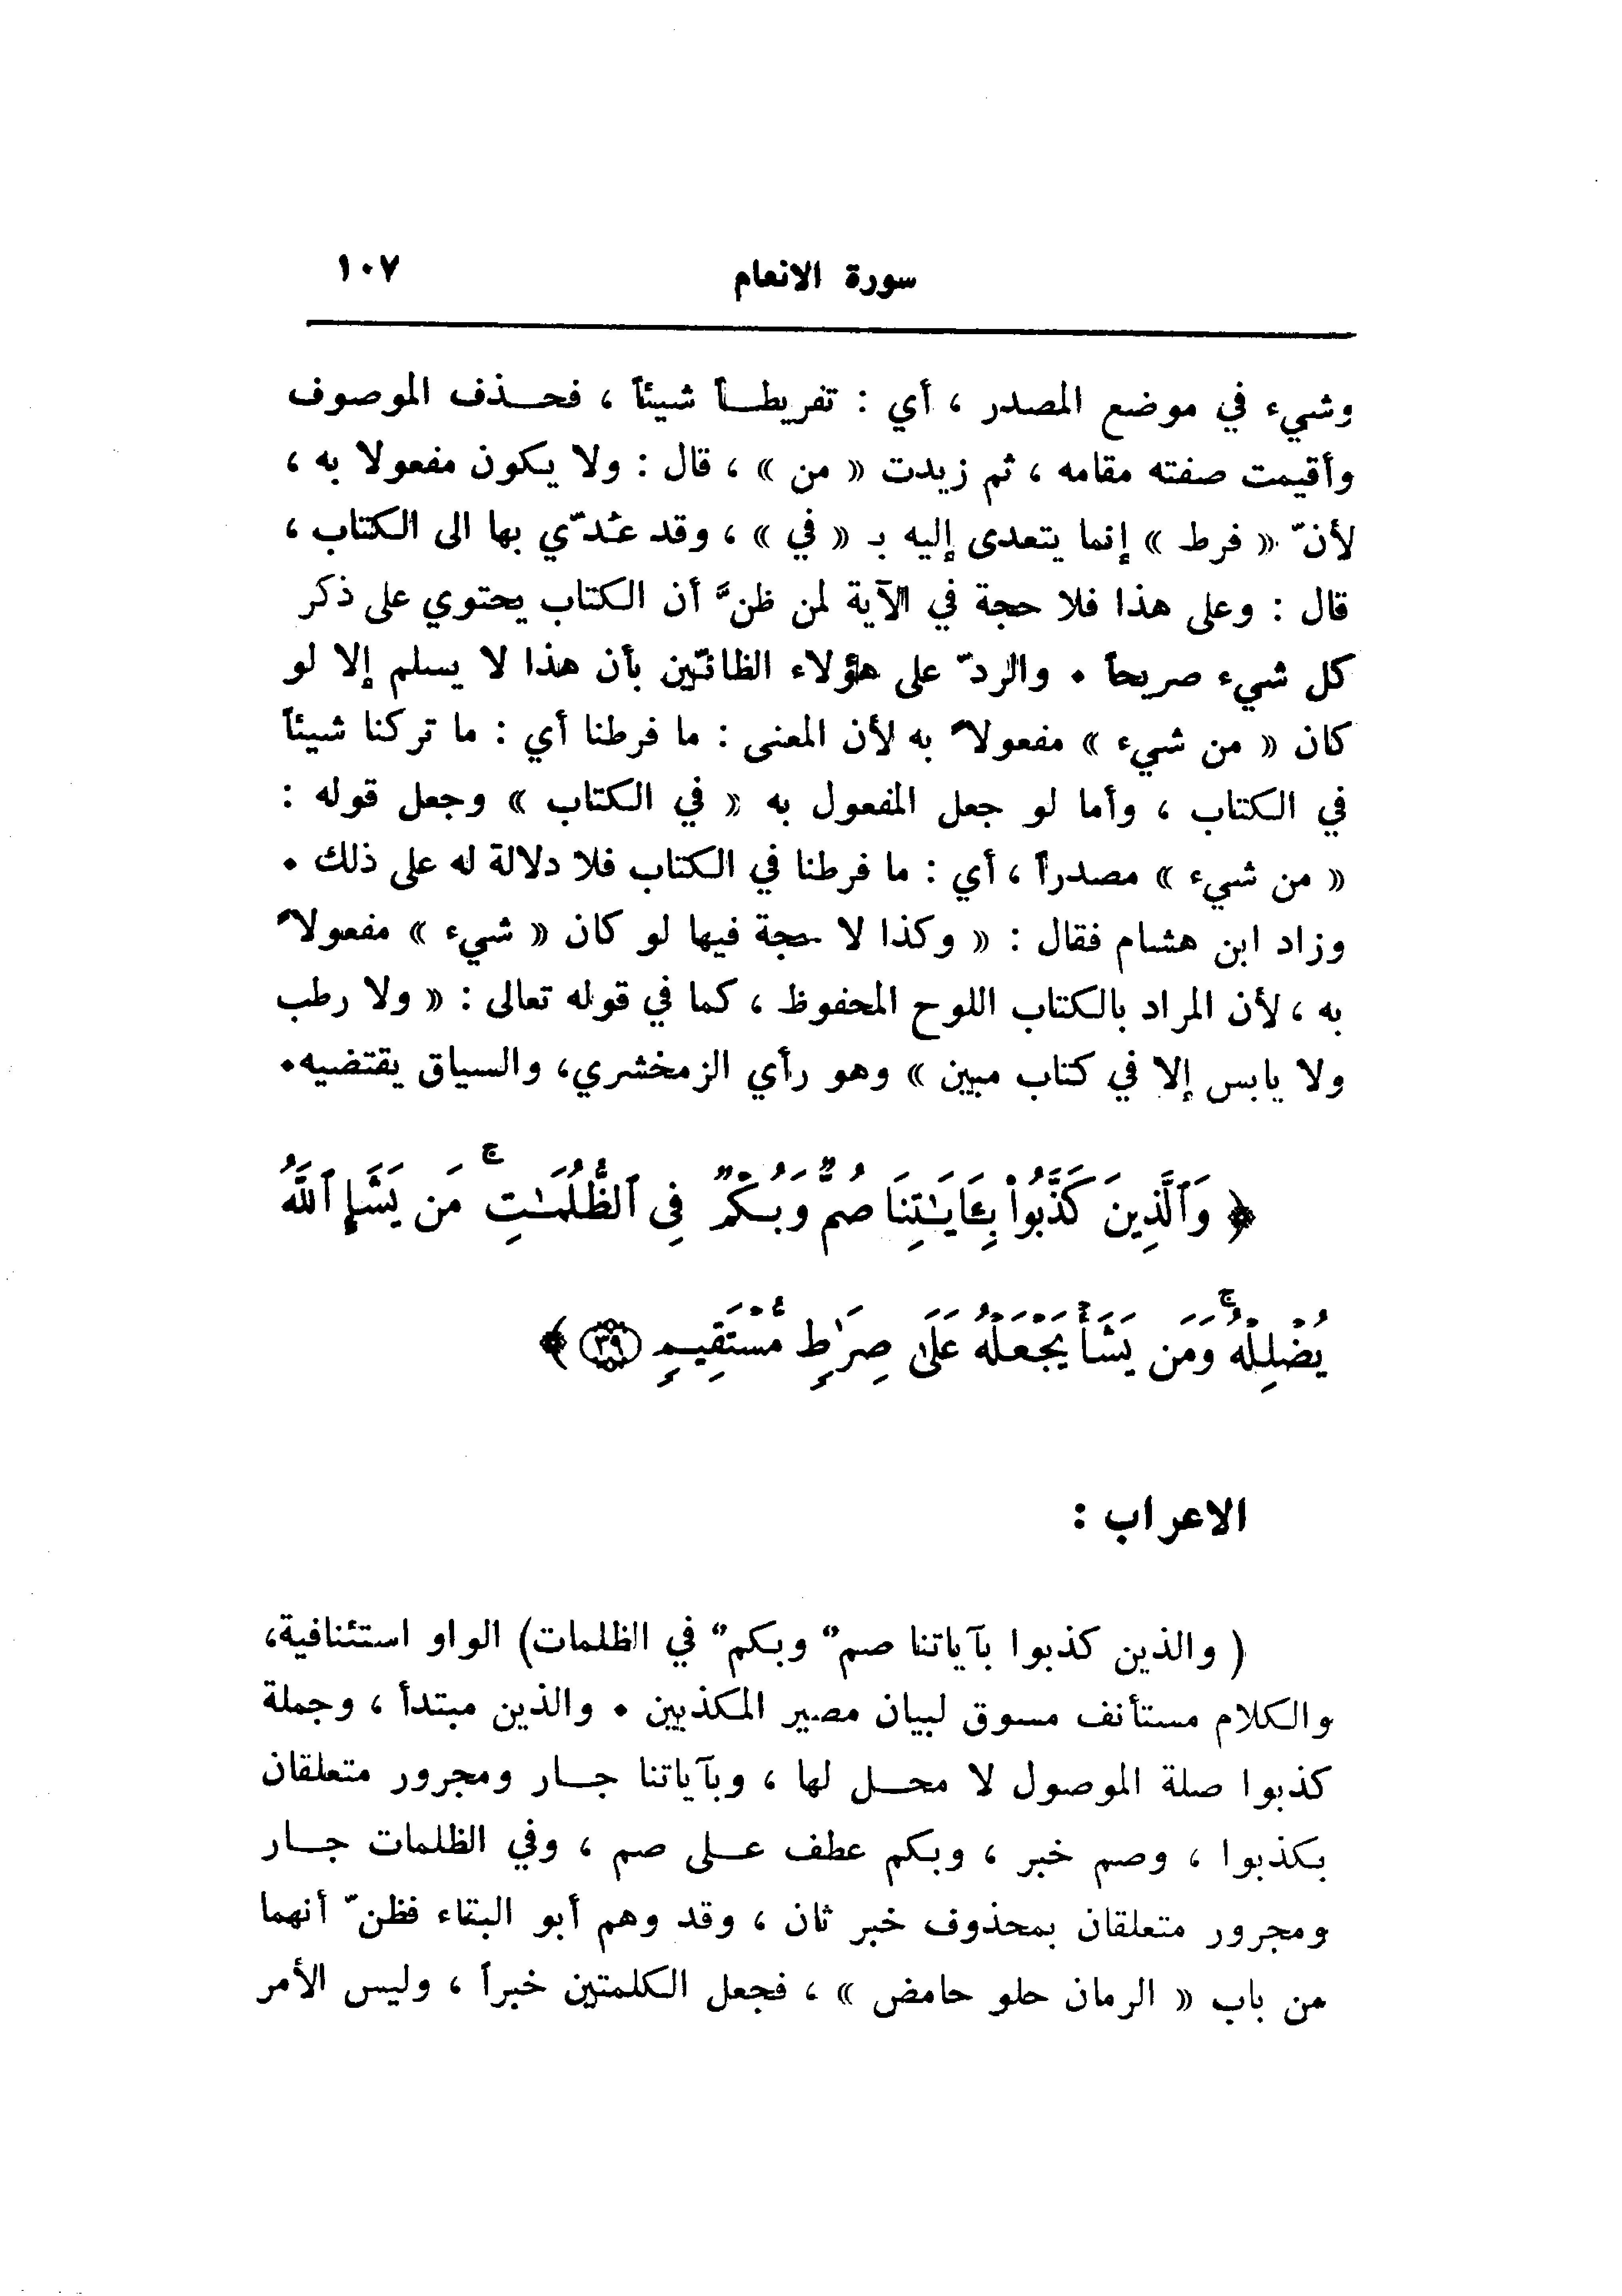 سورة الانعام ١٠٧
وشيء في موضع المصدر ، أي : تفريطـاً شيئاً ، فحـذف الموصوف
وأقيمت صفته مقامه ، ثم زيدت « من » ، قال : ولا يكون مفعولا به ،
لأنّ « فرط » إنما يتعدى إليه بـ « في » ، وقد عُدّي بها الى الكتاب ،
قال : وعلى هذا فلا حجة في الآية لمن ظنَّ أن الكتاب يحتوي على ذكر
كل شيء صريحاً . والردّ على هؤلاء الظانّين بأن هذا لا يسلم إلا لو
كان « من شيء » مفعولاً به لأن المعنى : ما فرطنا أي : ما تركنا شيئاً
في الكتاب ، وأما لو جعل المفعول به « في الكتاب » وجعل قوله :
« من شيء » مصدراً ، أي : ما فرطنا في الكتاب فلا دلالة له على ذلك .
وزاد ابن هشام فقال : « وكذا لا حجة فيها لو كان « شيء » مفعولاً
به ، لأن المراد بالكتاب اللوح المحفوظ ، كما في قوله تعالى : « ولا رطب
ولا يابس إلا في كتاب مبين » وهو رأي الزمخشري، والسياق يقتضيه.
﴿ وَٱلَّذِينَ كَذَّبُوا۟ بِـَٔايَـٰتِنَا صُمٌّ وَبُكْمٌ فِى ٱلظُّلُمَـٰتِ ۚ مَن يَشَإِ ٱللَّهُ
يُضْلِلْهُ ۚ وَمَن يَشَأْ يَجْعَلْهُ عَلَىٰ صِرَٰطٍ مُّسْتَقِيمٍ ٣٩ ﴾
الاعراب :
( والذين كذبوا بآياتنا صمٌ وبكمٌ في الظلمات) الواو استئنافية،
والكلام مستأنف مسوق لبيان مصير المكذبين . والذين مبتدأ ، وجملة
كذبوا صلة الموصول لا محـل لها ، وبآياتنا جـار ومجرور متعلقان
بكذبوا ، وصم خبر ، وبكم عطف عـلى صم ، وفي الظلمات جـار
ومجرور متعلقان بمحذوف خبر ثان ، وقد وهم أبو البقاء فظنّ أنهما
من باب « الرمان حلو حامض » ، فجعل الكلمتين خبراً ، وليس الأمر